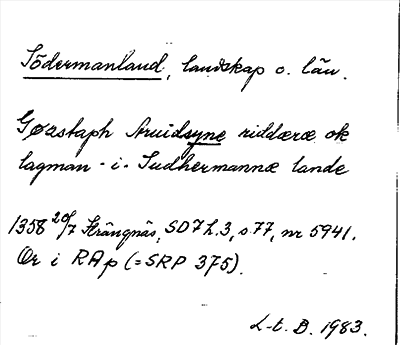 Södermanland, landskap o. län.
Gøzstaph Aruidsyne riddæræ ok
lagman - i - Sudhermannæ lande
1358 20/7 Strängnäs, SD 7 h. 3, s. 77, nr 5941.
Or i RAp (= SRP 375).
L-t. B. 1983.